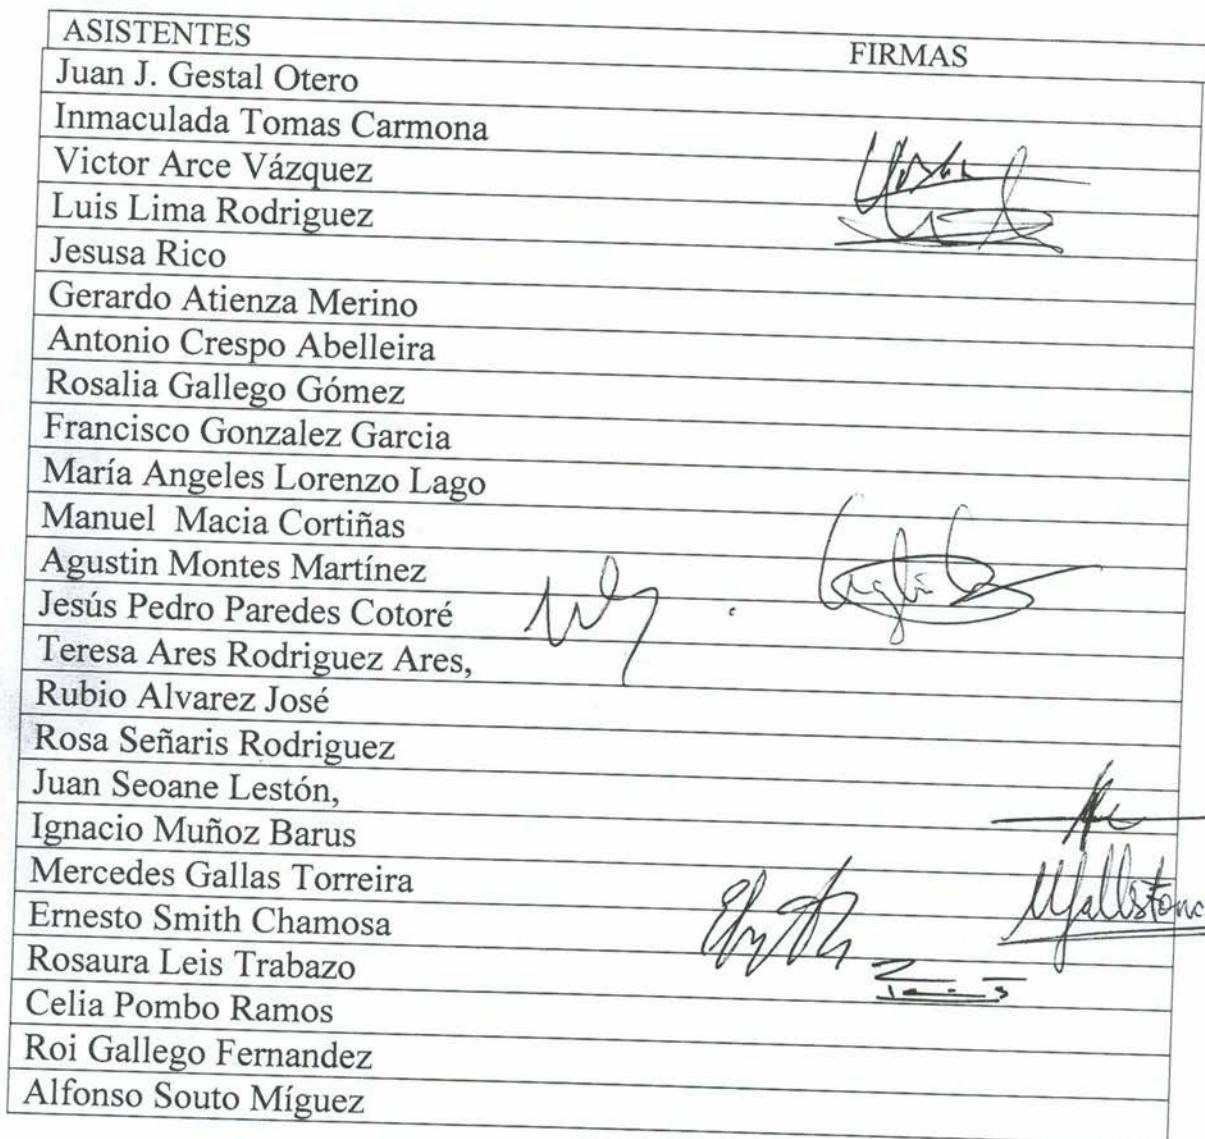 ASISTENTES FIRMAS
Juan J. Gestal Otero
Inmaculada Tomas Carmona
Victor Arce Vázquez
Luis Lima Rodriguez
Jesusa Rico
Gerardo Atienza Merino
Antonio Crespo Abelleira
Rosalia Gallego Gómez
Francisco Gonzalez Garcia
María Angeles Lorenzo Lago
Manuel Macia Cortiñas
Agustin Montes Martínez
Jesús Pedro Paredes Cotoré
Teresa Ares Rodriguez Ares,
Rubio Alvarez José
Rosa Señaris Rodriguez
Juan Seoane Lestón,
Ignacio Muñoz Barus
Mercedes Gallas Torreira
Ernesto Smith Chamosa
Rosaura Leis Trabazo
Celia Pombo Ramos
Roi Gallego Fernandez
Alfonso Souto Míguez